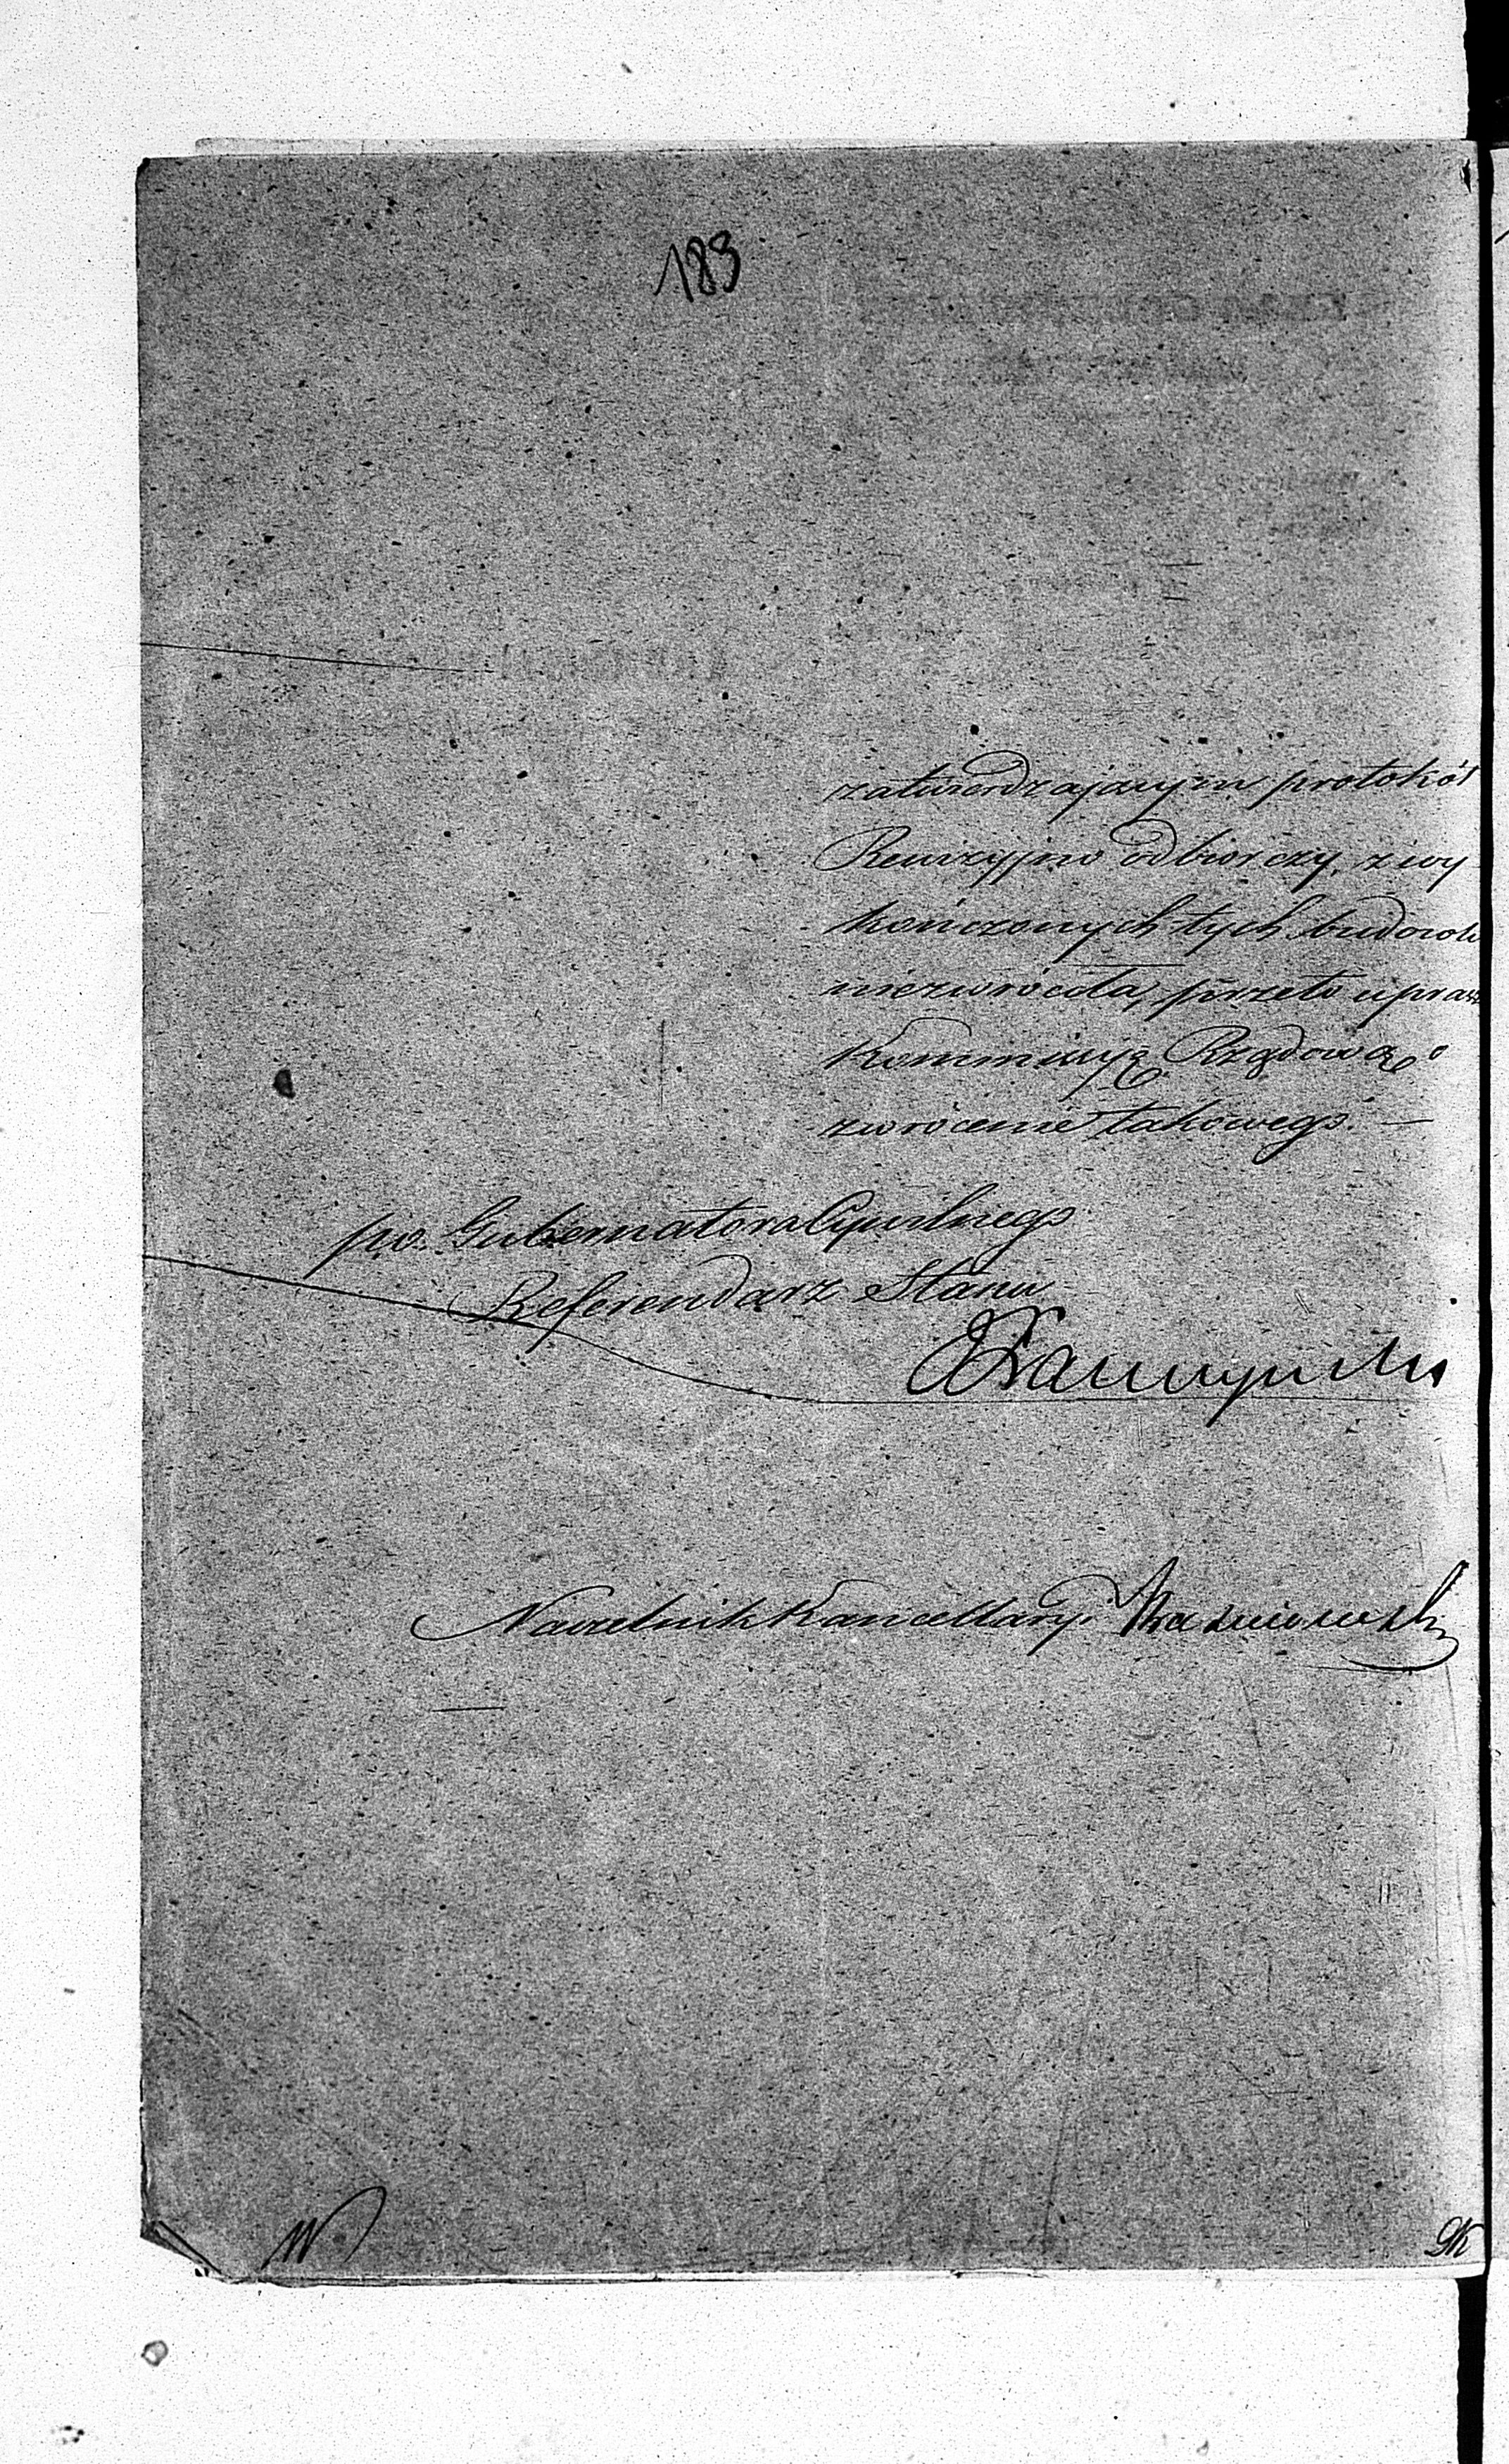 183
zatwierdzającym protokół
Rewizyjno odbiorczy, z wy
kończonych tych budowli
niezwróciła, przeto uprasz
Kommissyę Rządową o
zwrócenie takowego. —
po. Gubernatora Cywilnego
Referendarz Stanu
Naczelnik Kancellaryi